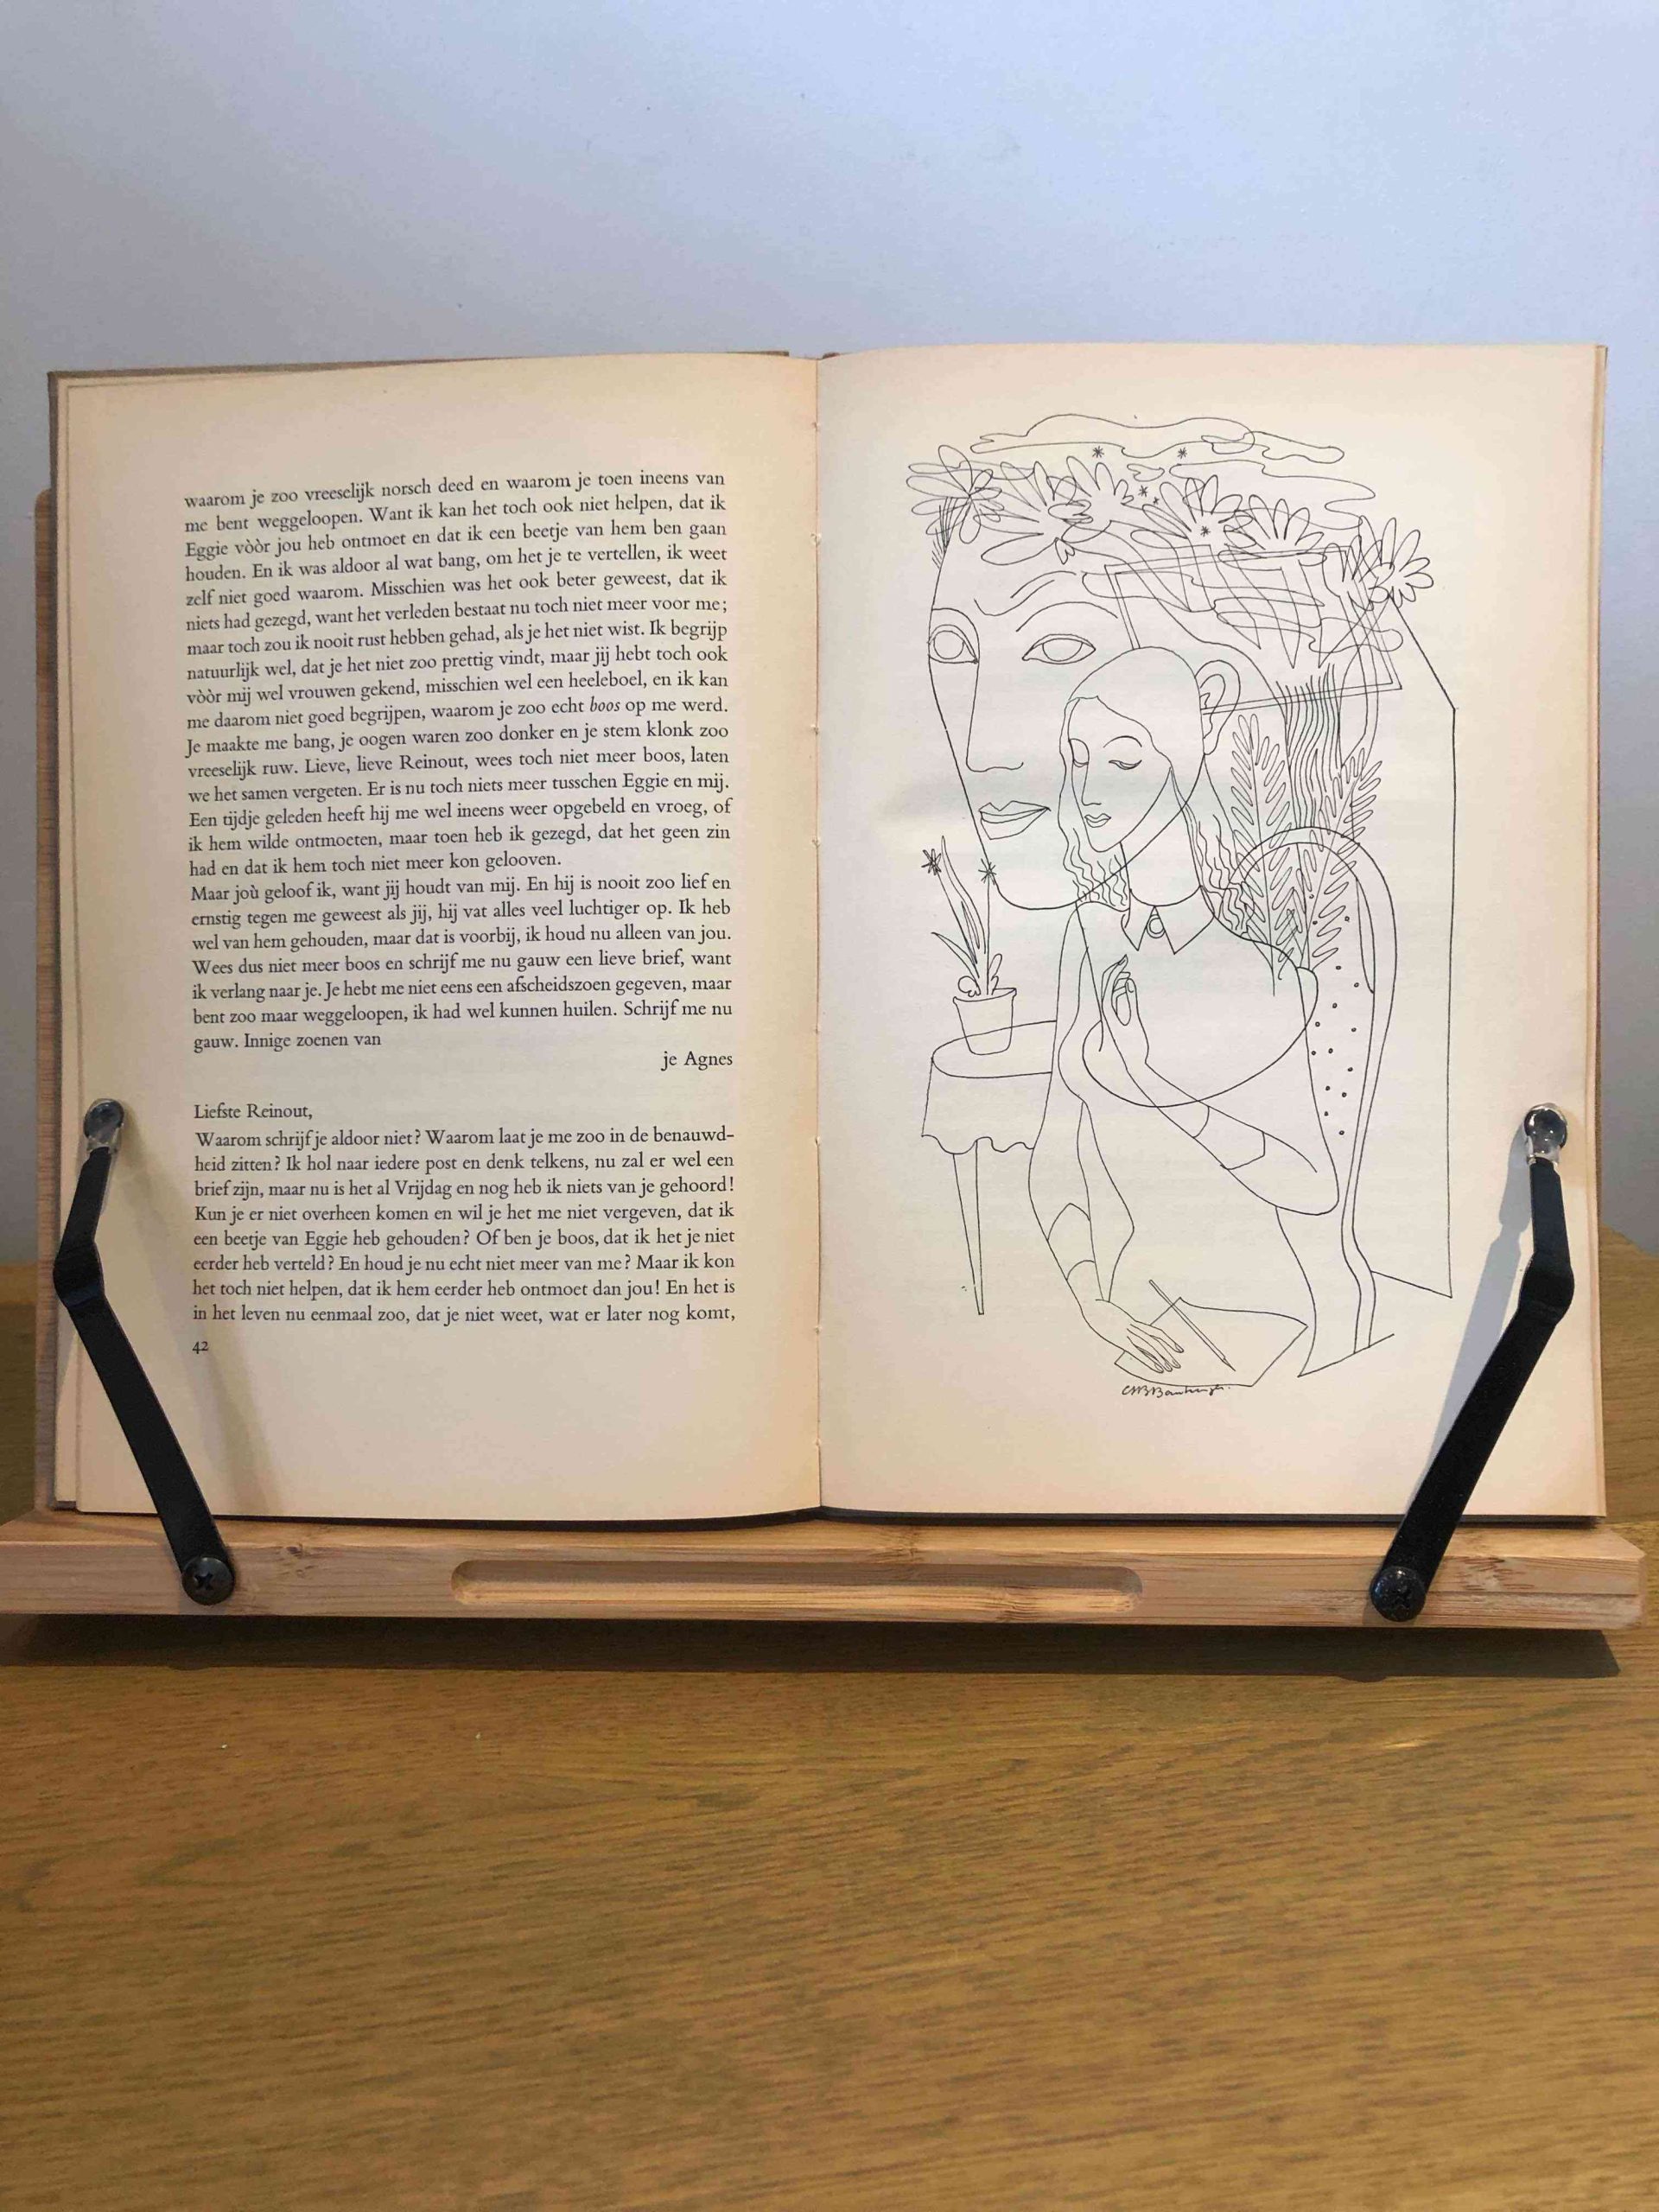 waarom je zoo vreeselijk norsch deed en waarom je toen ineens van
me bent weggeloopen. Want ik kan het toch ook niet helpen, dat ik
Eggie vòòr jou heb ontmoet en dat ik een beetje van hem ben gaan
houden. En ik was aldoor al wat bang, om het je te vertellen, ik weet
zelf niet goed waarom. Misschien was het ook beter geweest, dat ik
niets had gezegd, want het verleden bestaat nu toch niet meer voor me;
maar toch zou ik nooit rust hebben gehad, als je het niet wist. Ik begrijp
natuurlijk wel, dat je het niet zoo prettig vindt, maar jij hebt toch ook
vòòr mij wel vrouwen gekend, misschien wel een heeleboel, en ik kan
me daarom niet goed begrijpen, waarom je zoo echt boos op me werd.
Je maakte me bang, je oogen waren zoo donker en je stem klonk zoo
vreeselijk ruw. Lieve, lieve Reinout, wees toch niet meer boos, laten
we het samen vergeten. Er is nu toch niets meer tusschen Eggie en mij.
Een tijdje geleden heeft hij me wel ineens weer opgebeld en vroeg, of
ik hem wilde ontmoeten, maar toen heb ik gezegd, dat het geen zin
had en dat ik hem toch niet meer kon gelooven.
Maar joù geloof ik, want jij houdt van mij. En hij is nooit zoo lief en
ernstig tegen me geweest als jij, hij vat alles veel luchtiger op. Ik heb
wel van hem gehouden, maar dat is voorbij, ik houd nu alleen van jou.
Wees dus niet meer boos en schrijf me nu gauw een lieve brief, want
ik verlang naar je. Je hebt me niet eens een afscheidszoen gegeven, maar
bent zoo maar weggeloopen, ik had wel kunnen huilen. Schrijf me nu
gauw. Innige zoenen van
je Agnes
Liefste Reinout,
Waarom schrijf je aldoor niet? Waarom laat je me zoo in de benauwd-
heid zitten? Ik hol naar iedere post en denk telkens, nu zal er wel een
brief zijn, maar nu is het al Vrijdag en nog heb ik niets van je gehoord!
Kun je er niet overheen komen en wil je het me niet vergeven, dat ik
een beetje van Eggie heb gehouden? Of ben je boos, dat ik het je niet
eerder heb verteld? En houd je nu echt niet meer van me? Maar ik kon
het toch niet helpen, dat ik hem eerder heb ontmoet dan jou! En het is
in het leven nu eenmaal zoo, dat je niet weet, wat er later nog komt,
42